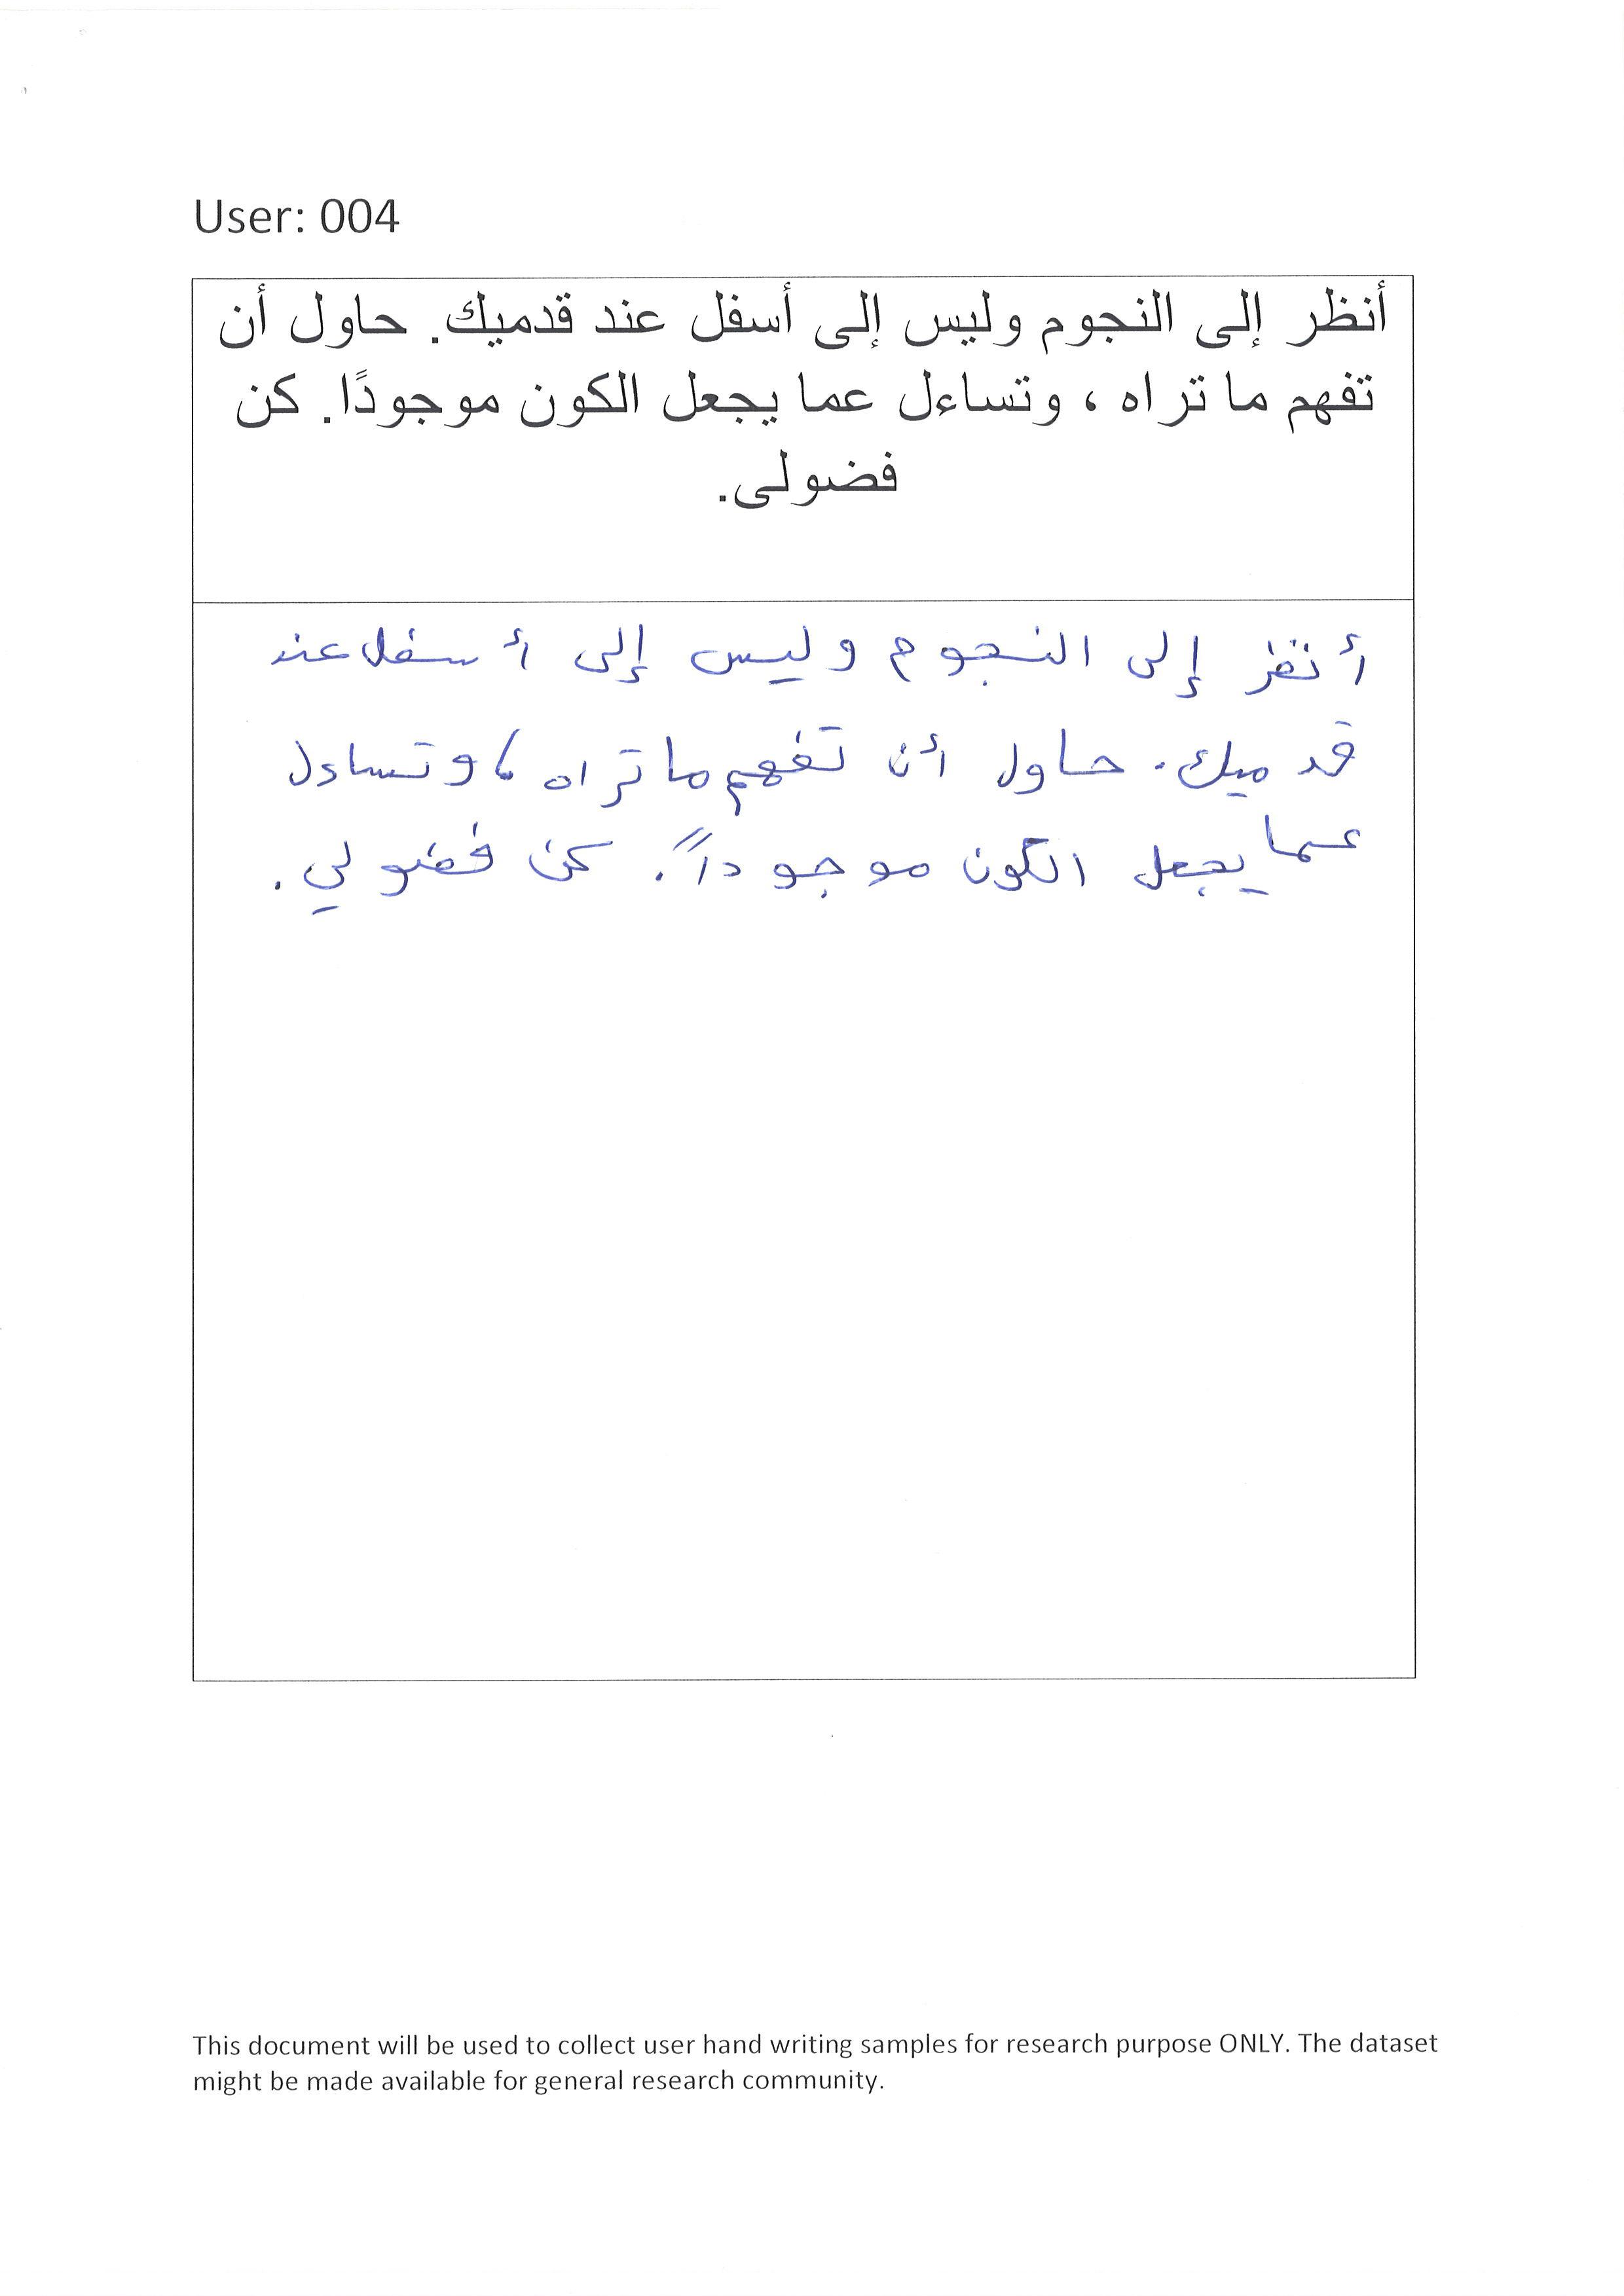 User: 004
أنظر إلى النجوم وليس إلى أسفل عند قدميك. حاول أن
تفهم ما تراه ، وتساءل عما يجعل الكون موجودًا. كن
فضولى.
أنظر إلى النجوم وليس إلى أسفل عند
قدميك. حاول أن تفهم ما تراه ، وتساءل
عما يجعل الكون موجوداً. كن فضولي.
This document will be used to collect user hand writing samples for research purpose ONLY. The dataset
might be made available for general research community.